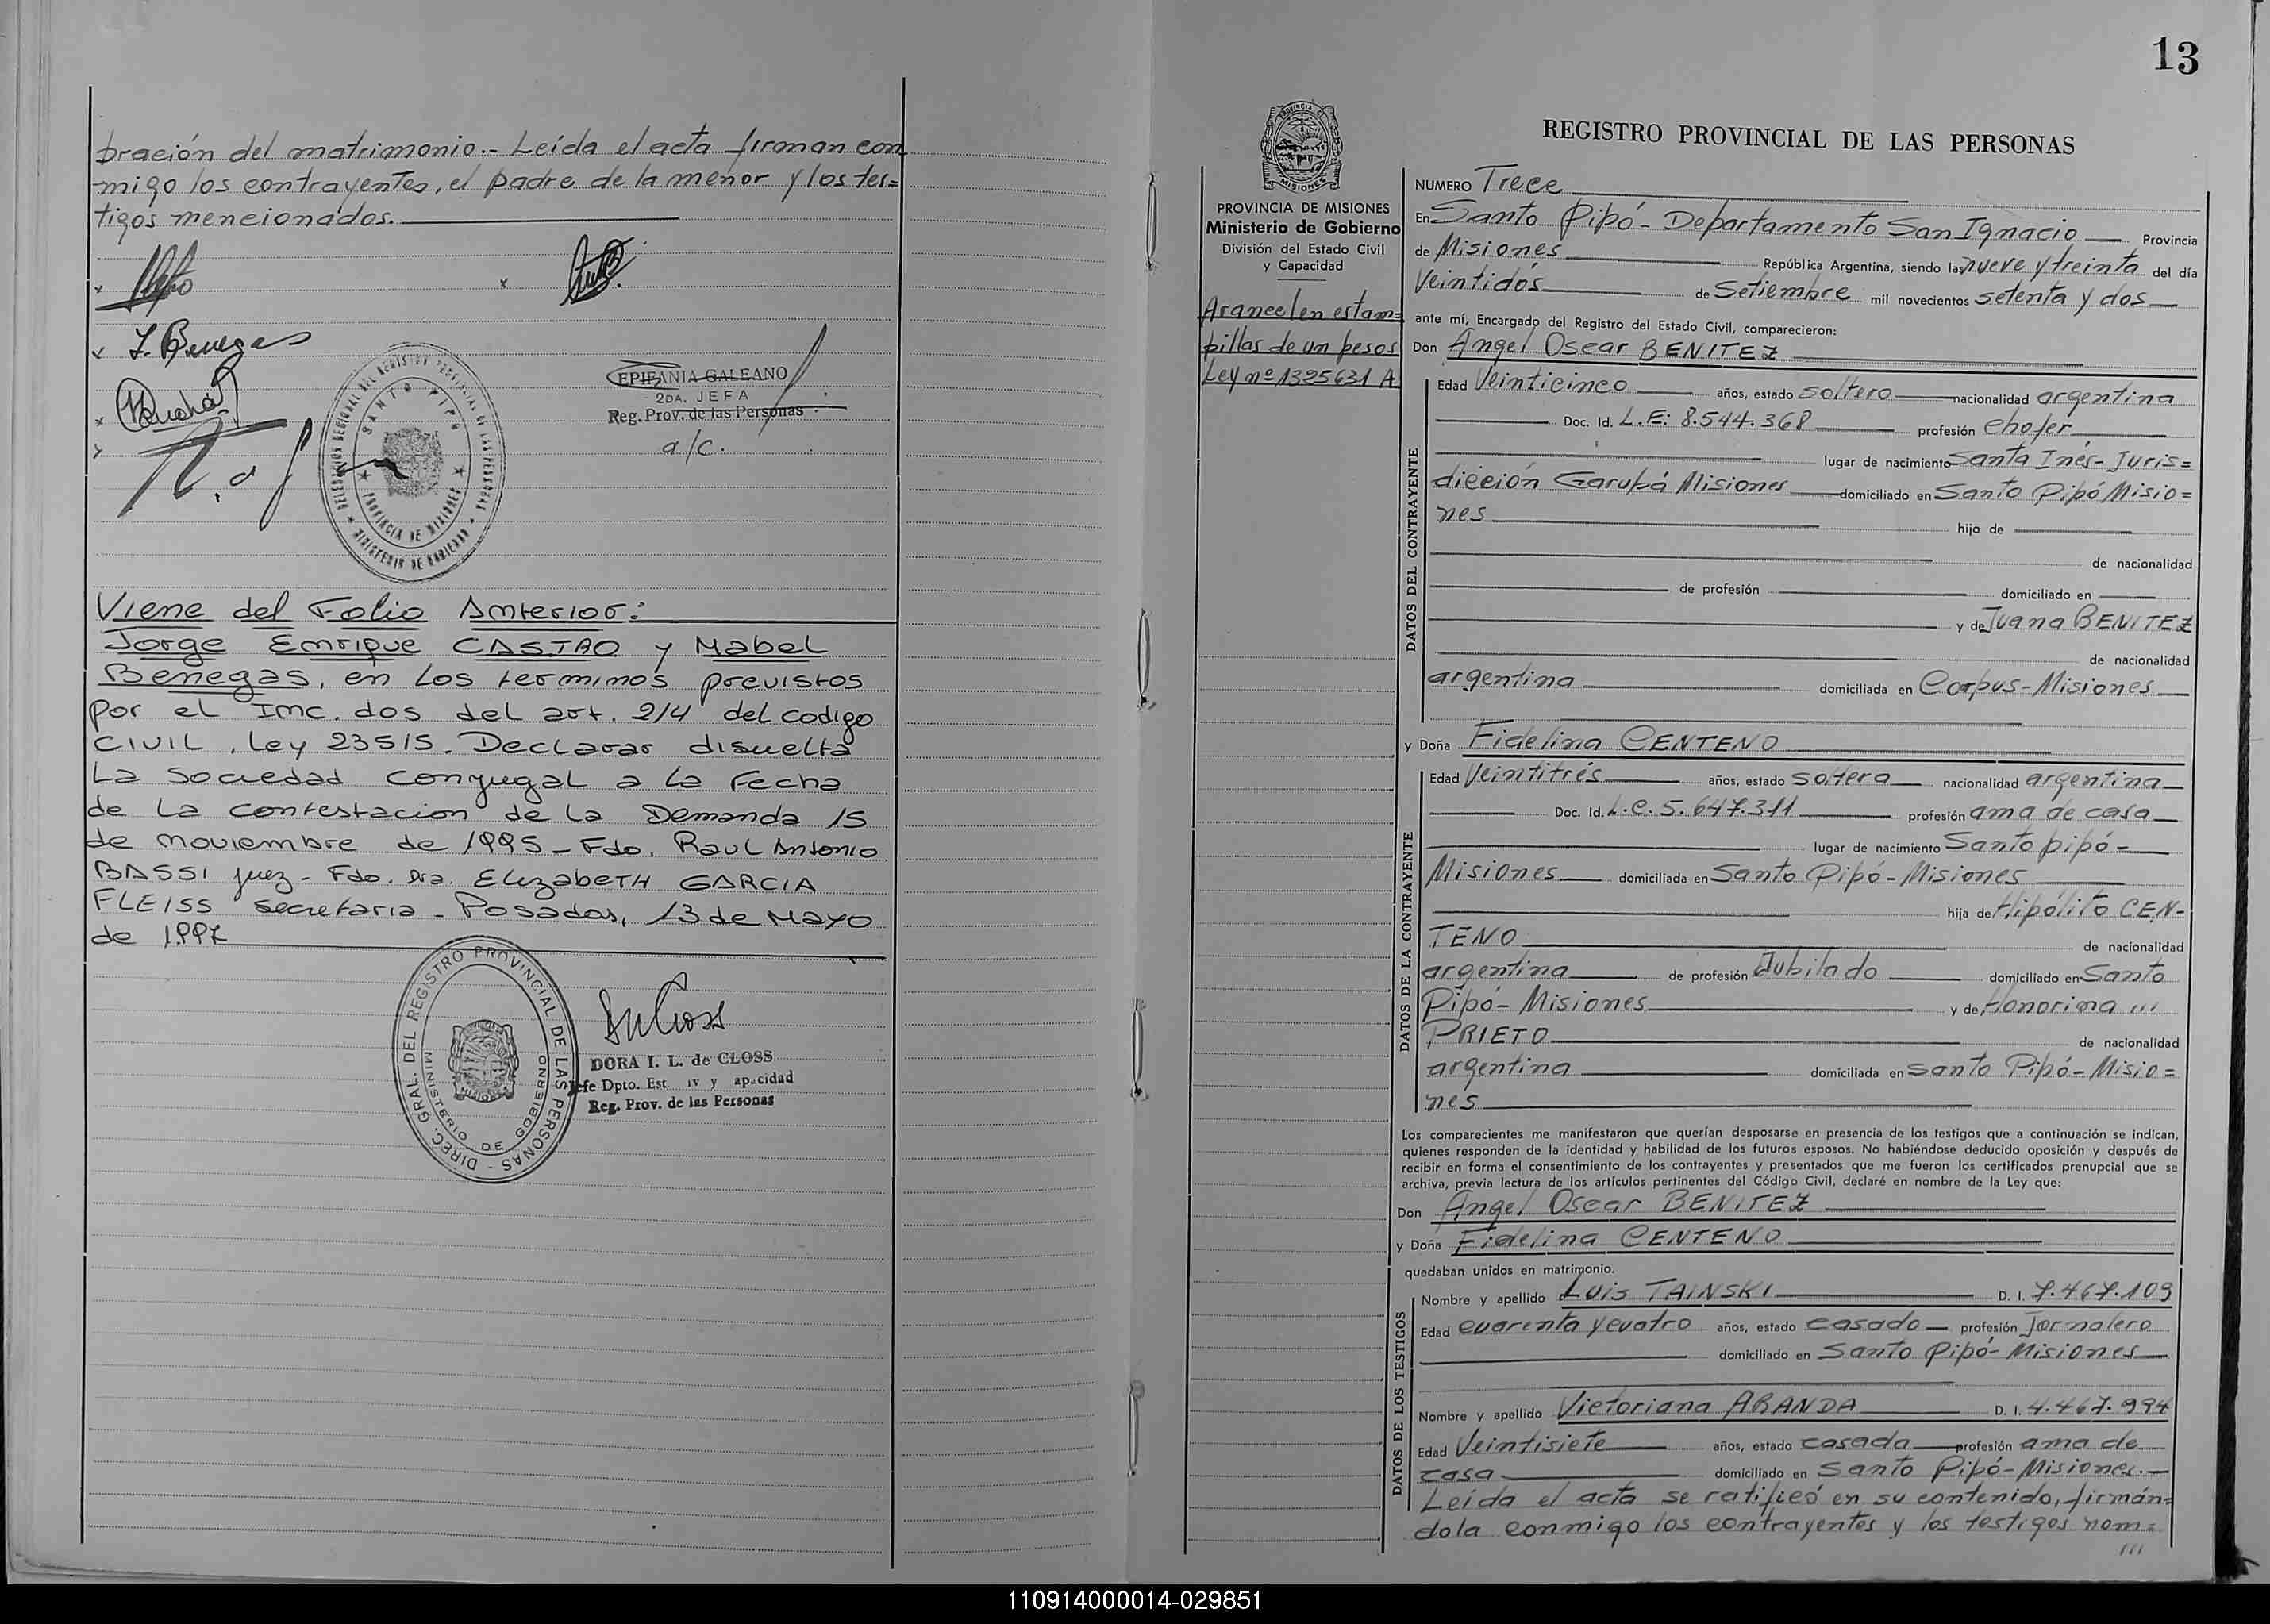 bración del matrimonio.- Leída el acta firman con
migo los contrayentes, el padre de la menor y los tes=
tigos mencionados.
J. Benegas
EPIFANIA GALEANO
2DA. JEFA
Reg. Prov. de las Personas
a/c.
SANTO PIPO
PROVINCIA DE MISIONES
MINISTERIO DE GOBIERNO
Viene del Folio Anterior:
Jorge Enrique CASTRO y Mabel
Benegas, en los terminos previstos
por el Inc. dos del art. 214 del codigo
CIVIL, Ley 23515. Declarar disuelta
La Sociedad conyugal a la Fecha
de La contestacion de la Demanda 15
de noviembre de 1995 - Fdo. Raul Antonio
BASSI juez - Fdo. Dra. Elizabeth GARCIA
FLEISS secretaria - Posadas, 13 de Mayo
de 1997
DIREC. GRAL. DEL REGISTRO PROVINCIAL DE LAS PERSONAS -
MINISTERIO DE GOBIERNO
MISIONES
DORA I. L. de CLOSS
Jefe Dpto. Est iv y apacidad
Reg. Prov. de las Personas
13
PROVINCIA
MISIONES
PROVINCIA DE MISIONES
Ministerio de Gobierno
División del Estado Civil
y Capacidad
Arancel en estam=
pillas de un pesos
Ley nº 1325631 A
REGISTRO PROVINCIAL DE LAS PERSONAS
NUMERO Trece
En Santo Pipó - Departamento San Ignacio Provincia
de Misiones República Argentina, siendo las nueve y treinta del día
Veintidós de Setiembre mil novecientos setenta y dos
ante mí, Encargado del Registro del Estado Civil, comparecieron:
Don Angel Oscar BENITEZ
DATOS DEL CONTRAYENTE
Edad Veinticinco años, estado soltero nacionalidad argentina
Doc. Id. L.E: 8.544.368 profesión chofer
lugar de nacimiento Santa Inés - Juris=
dicción Garupá Misiones domiciliado en Santo Pipó Misio=
nes hijo de
de nacionalidad
de profesión domiciliado en
y de Juana BENITEZ
de nacionalidad
argentina domiciliada en Corpus - Misiones
y Doña Fidelina CENTENO
DATOS DE LA CONTRAYENTE
Edad Veintitrés años, estado soltera nacionalidad argentina
Doc. Id. L.C. 5.647.311 profesión ama de casa
lugar de nacimiento Santo pipó -
Misiones domiciliada en Santo Pipó - Misiones
hija de Hipólito CEN-
TENO de nacionalidad
argentina de profesión Jubilado domiciliado en Santo
Pipó - Misiones y de Honorina ///
PRIETO de nacionalidad
argentina domiciliada en Santo Pipó - Misio=
nes
Los comparecientes me manifestaron que querían desposarse en presencia de los testigos que a continuación se indican,
quienes responden de la identidad y habilidad de los futuros esposos. No habiéndose deducido oposición y después de
recibir en forma el consentimiento de los contrayentes y presentados que me fueron los certificados prenupcial que se
archiva, previa lectura de los artículos pertinentes del Código Civil, declaré en nombre de la Ley que:
Don Angel Oscar BENITEZ
y Doña Fidelina CENTENO
quedaban unidos en matrimonio.
DATOS DE LOS TESTIGOS
Nombre y apellido Luis TAINSKI D. I. 7.467.109
Edad cuarenta y cuatro años, estado casado profesión Jornalero
domiciliado en Santo Pipó - Misiones
Nombre y apellido Victoriana ARANDA D. I. 4.467.994
Edad Veintisiete años, estado casada profesión ama de
casa domiciliado en Santo Pipó - Misiones.
Leída el acta se ratificó en su contenido, firmán=
dola conmigo los contrayentes y los testigos nom=
///
110914000014-029851